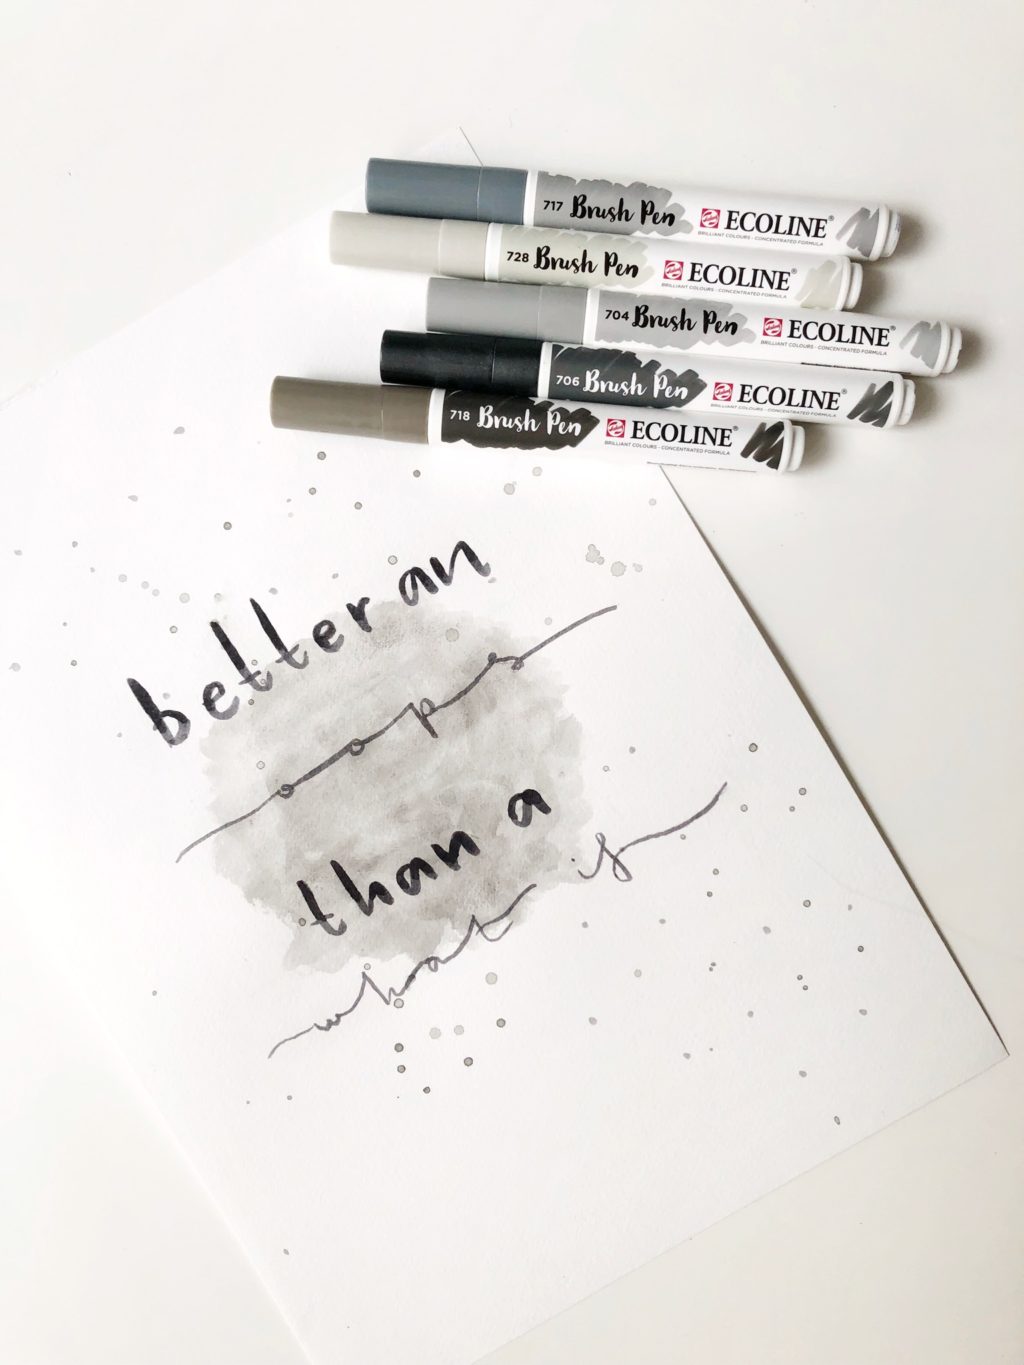 717 Brush Pen ECOLINE®
BRILLIANT COLOURS - CONCENTRATED FORMULA
728 Brush Pen ECOLINE®
BRILLIANT COLOURS - CONCENTRATED FORMULA
704 Brush Pen ECOLINE®
BRILLIANT COLOURS - CONCENTRATED FORMULA
706 Brush Pen ECOLINE®
BRILLIANT COLOURS - CONCENTRATED FORMULA
718 Brush Pen ECOLINE®
BRILLIANT COLOURS - CONCENTRATED FORMULA
better an
oops
than a
what is